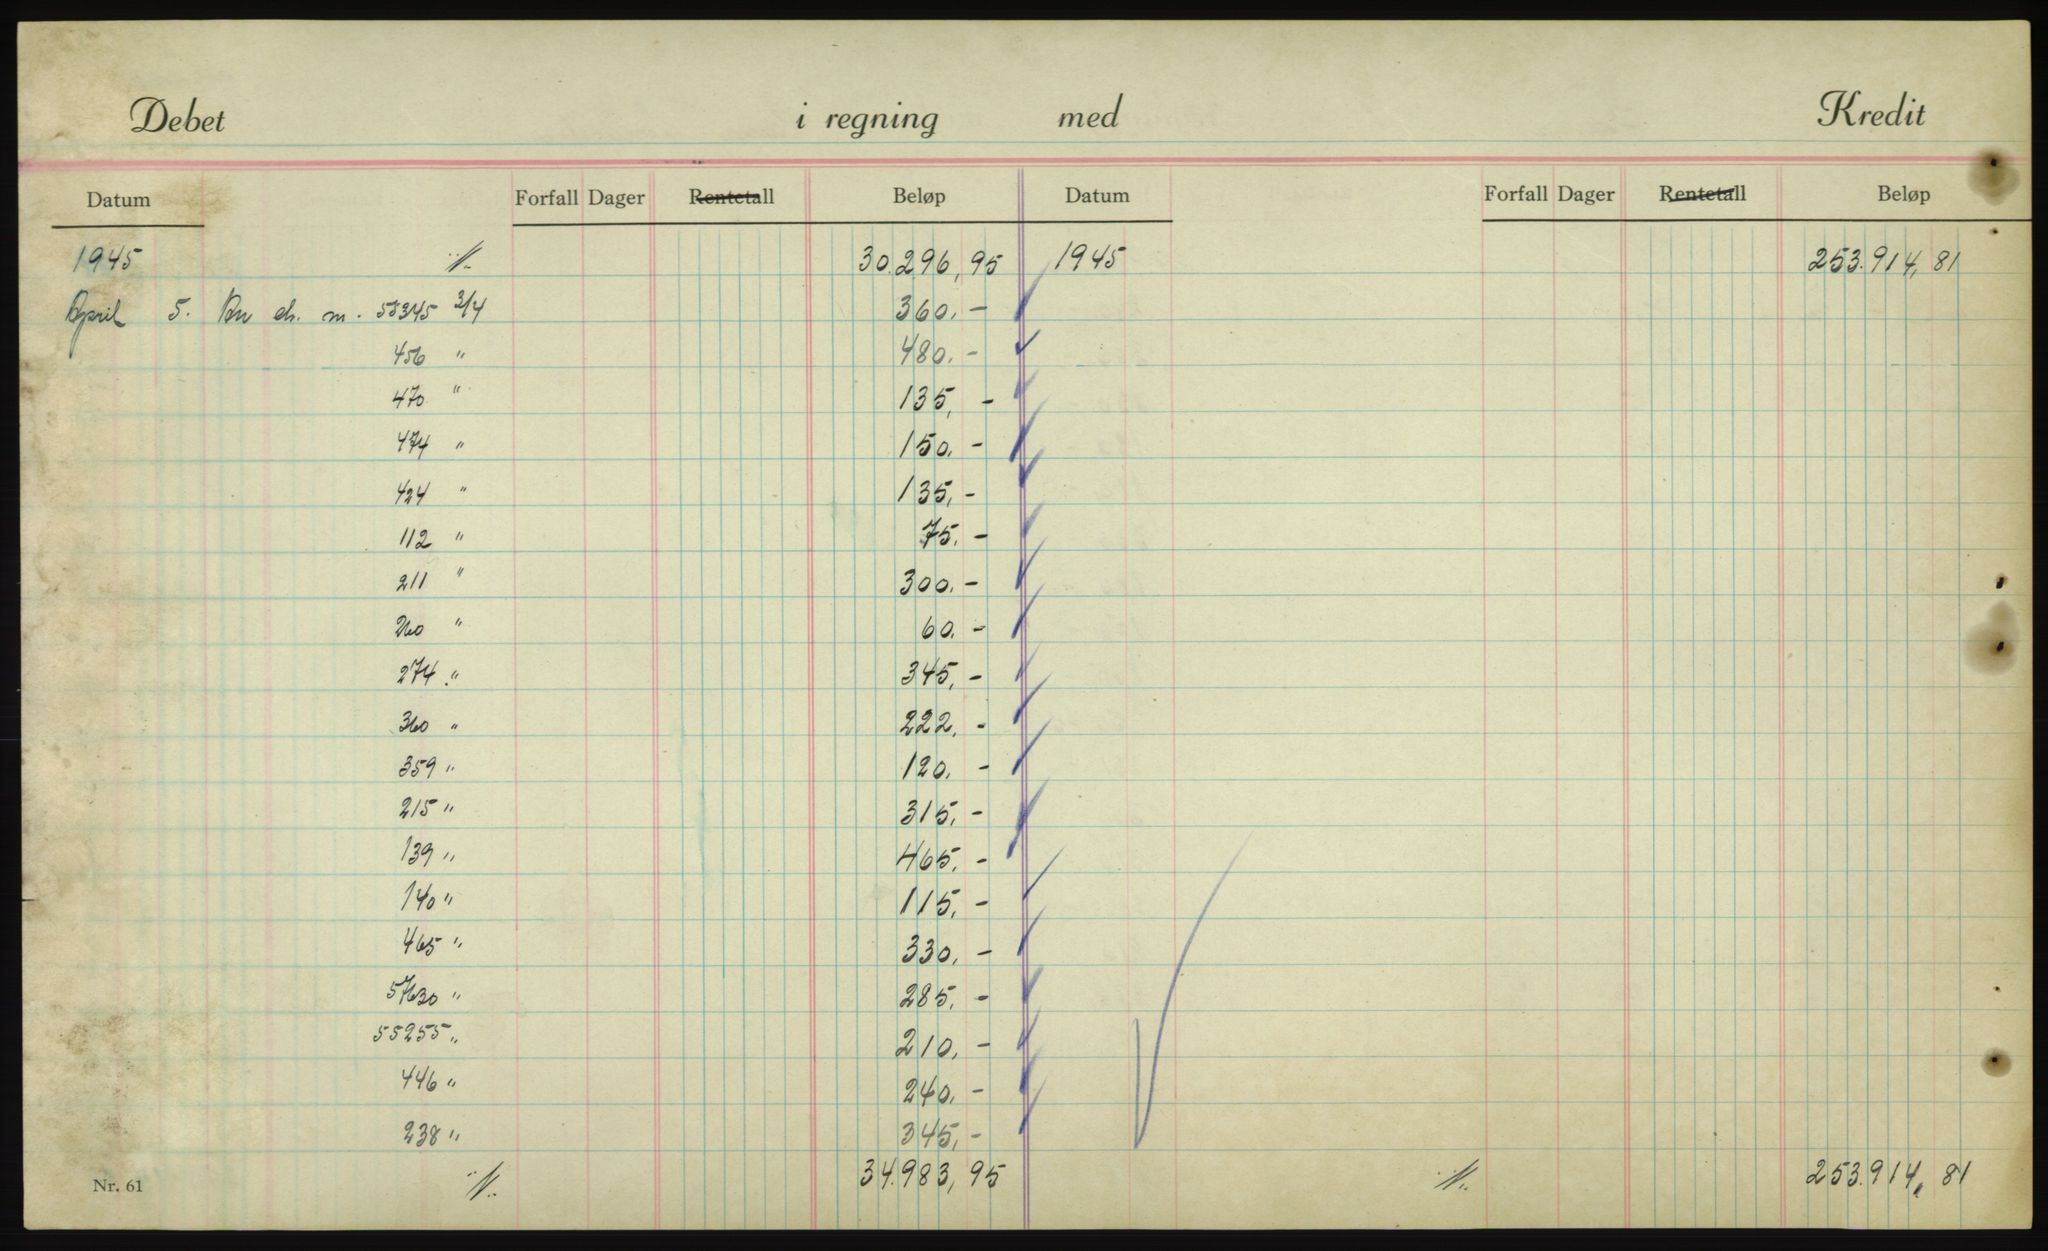 Debet i regning med Kredit
Datum Forfall Dager Rentetall Beløp Datum Forfall Dager Rentetall Beløp
1945 ·/.. 30.296,95 1945 253.914,81
April 5. An ch. m. 55345 3/4 360.-
456 " 480.-
470 " 135,-
474 " 150.-
424 " 135,-
112 " 75.-
211 " 300.-
260 " 60.-
274 " 345,-
360 " 222,-
359 " 120.-
215 " 315,-
139 " 465,-
140 " 115,-
465 " 330,-
57630 " 285,-
55255 " 210,-
446 " 240,-
238 " 345,-
Nr. 61 ·/.. 34.983,95 ·/.. 253.914,81